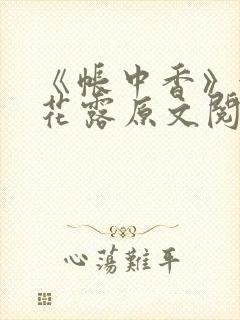 《帐中香》
花露原文阅
心荡難平